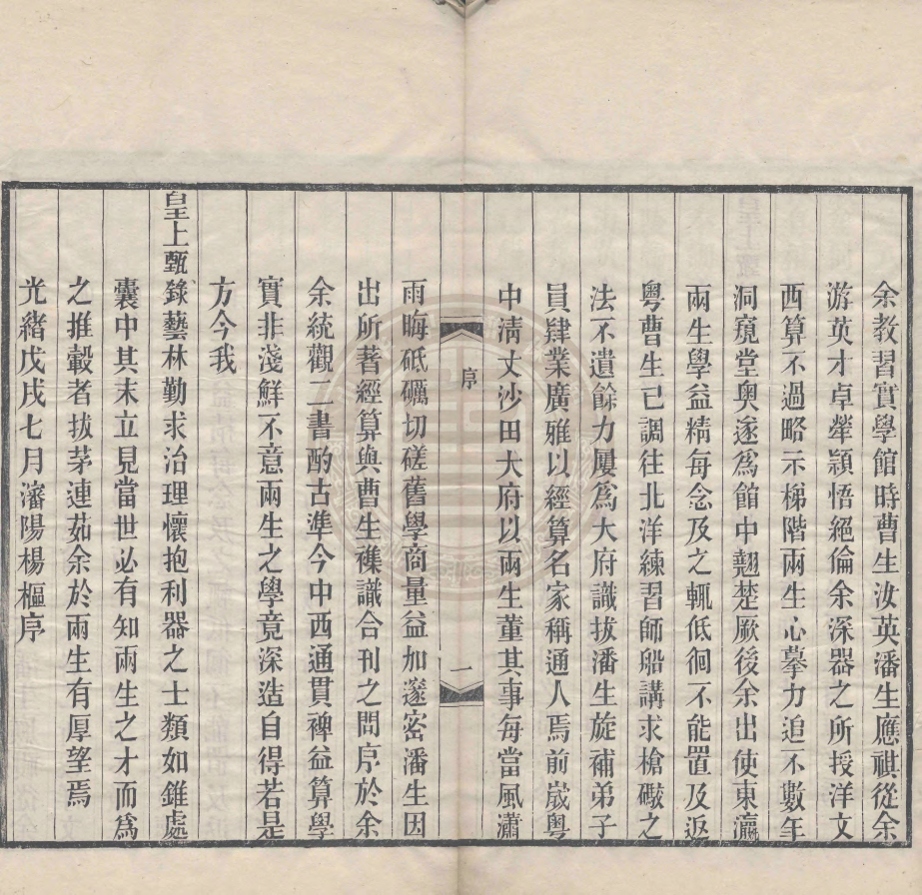 余教習實學館時曹生汝英潘生應祺從余
游英才卓犖頴悟絕倫余深器之所授洋文
西算不過略示梯階兩生心摹力追不數年
洞窺堂奧遂爲館中翹楚厥後余出使東瀛
兩生學益精每念及之輒低徊不能置及返
粵曹生已調往北洋練習師船講求槍礮之
法不遺餘力屢爲大府識拔潘生旋補弟子
員肄業廣雅以經算名家稱通人焉前歲粵
中清丈沙田大府以兩生董其事每當風瀟
序
一
雨晦砥礪切磋舊學商量益加邃密潘生因
出所著經算與曹生襍識合刊之問序於余
余統觀二書酌古準今中西通貫裨益算學
實非淺鮮不意兩生之學竟深造自得若是
方今我
皇上甄錄藝林勤求治理懷抱利器之士類如錐處
囊中其末立見當世必有知兩生之才而爲
之推轂者拔茅連茹余於兩生有厚望焉
光緒戊戌七月瀋陽楊樞序